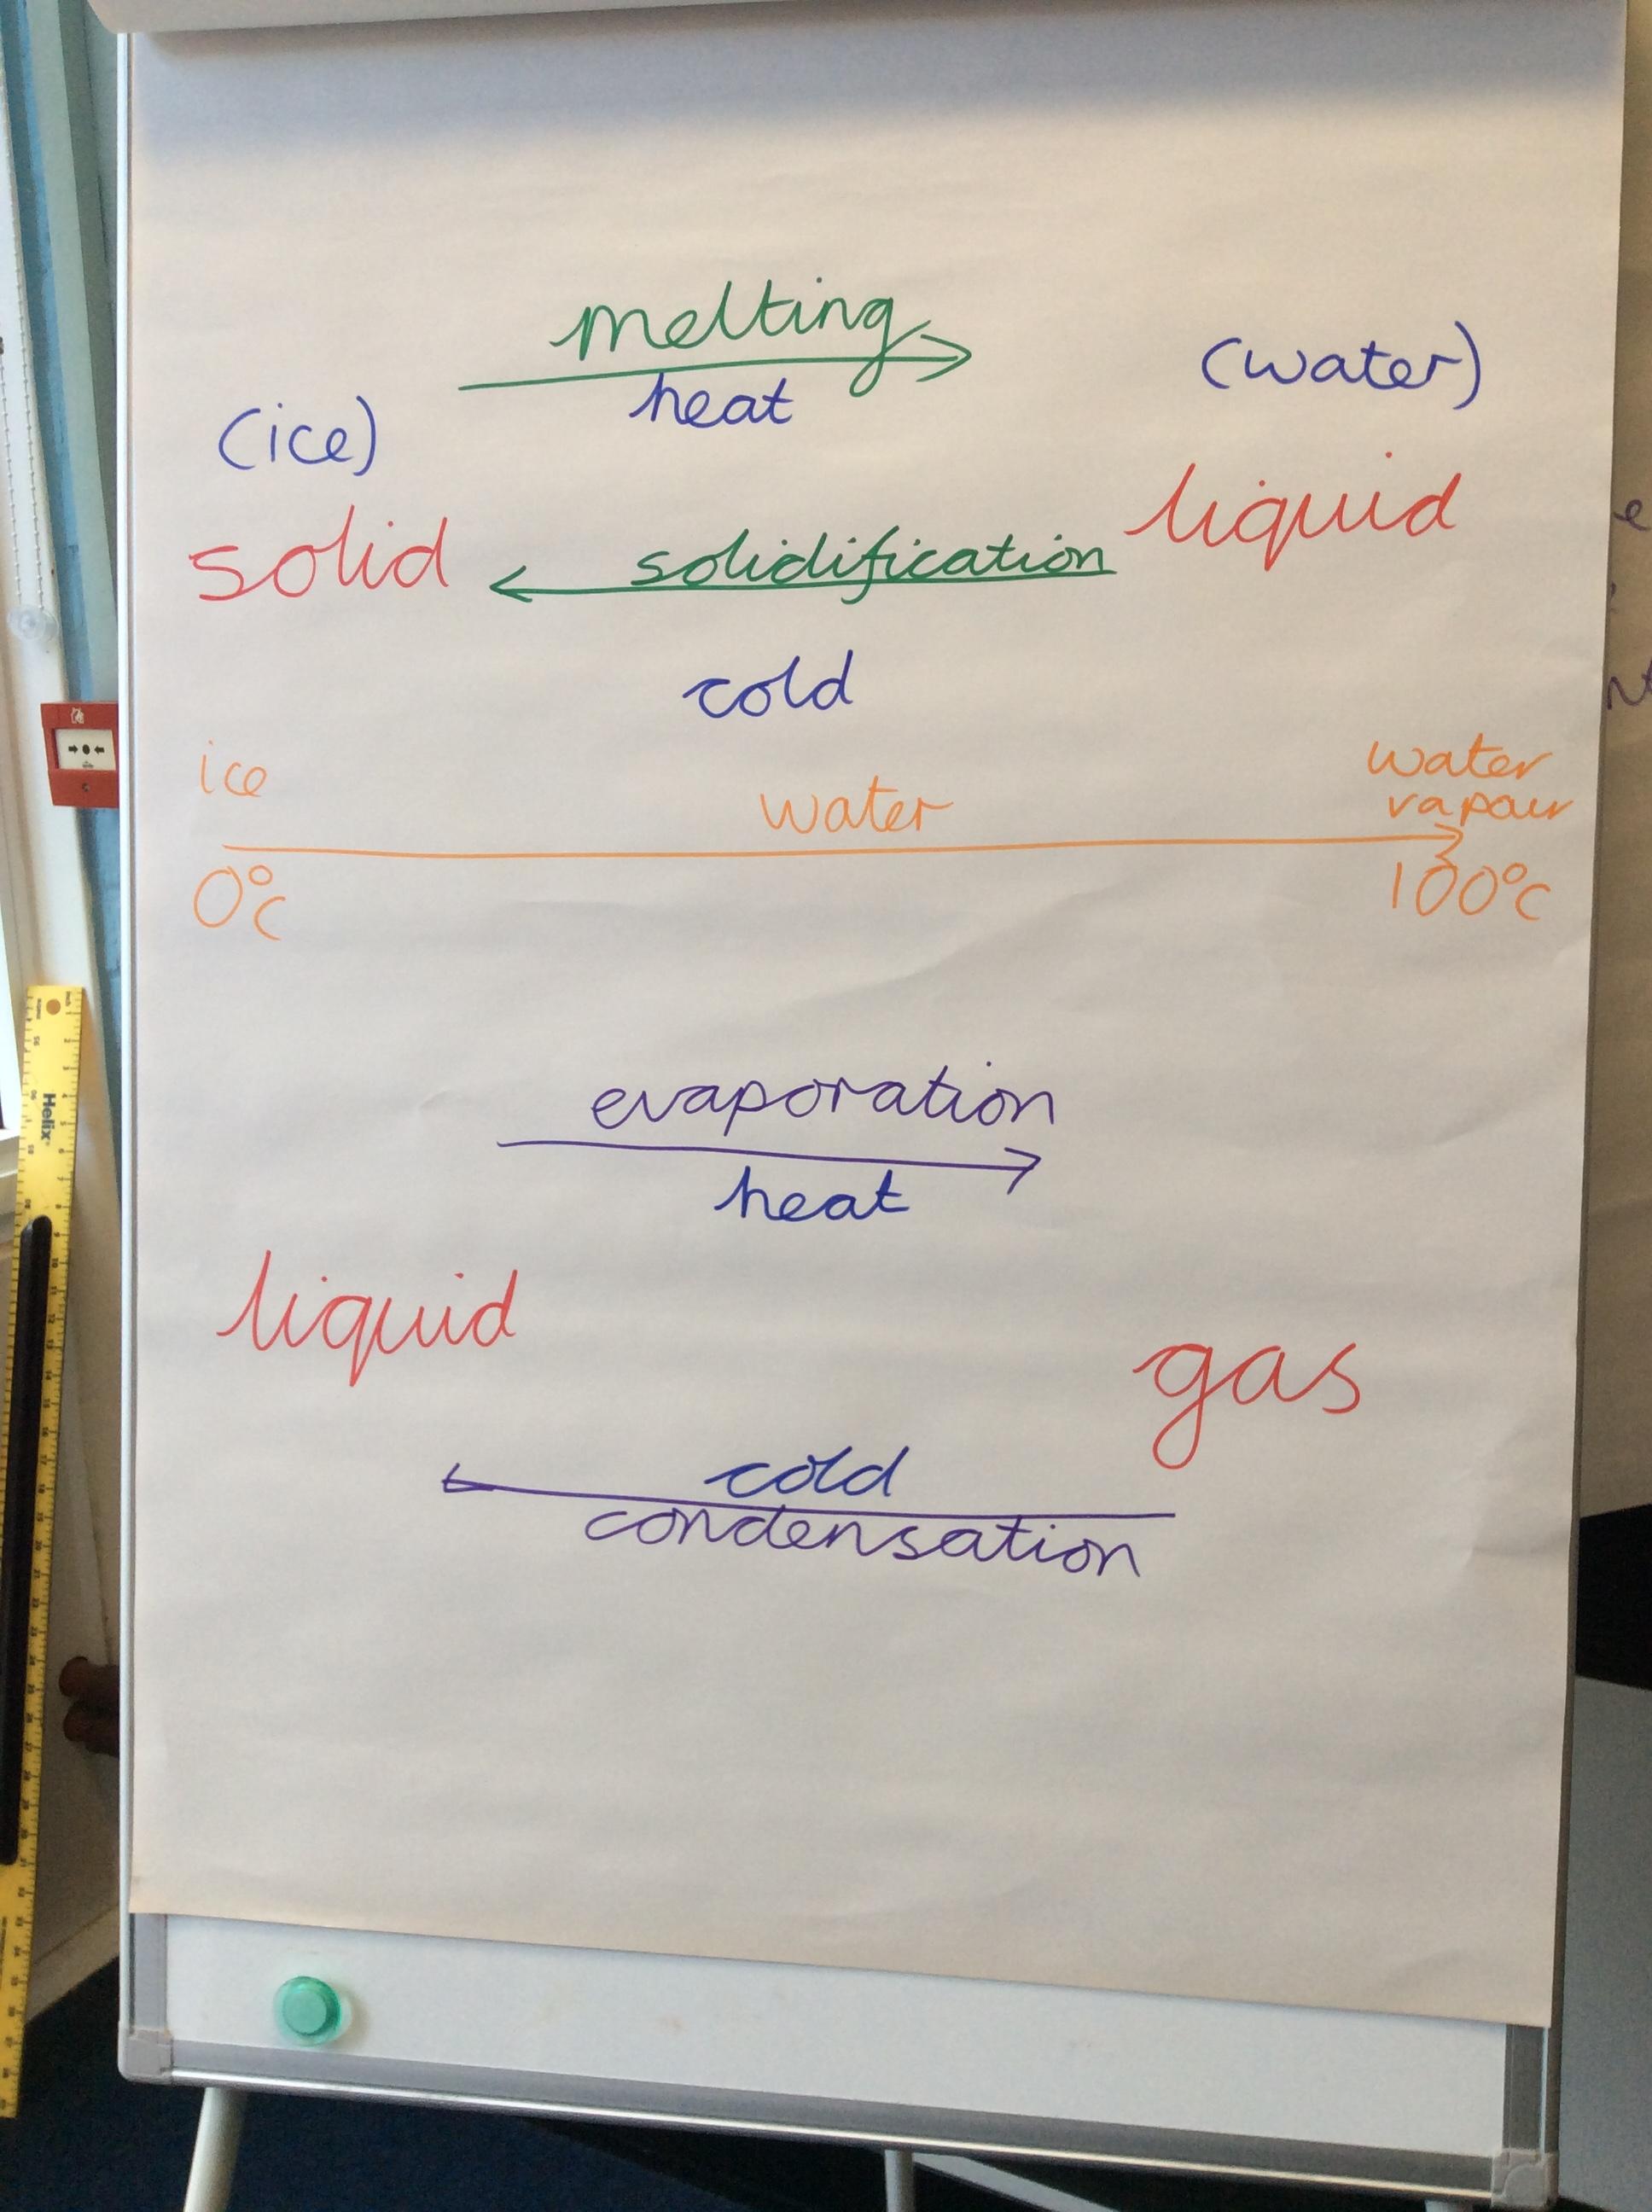 melting
heat
(ice)
(water)
solid
liquid
solidification
cold
ice
water
water
vapour
0°c
100°c
evaporation
heat
liquid
gas
cold
condensation
Helix